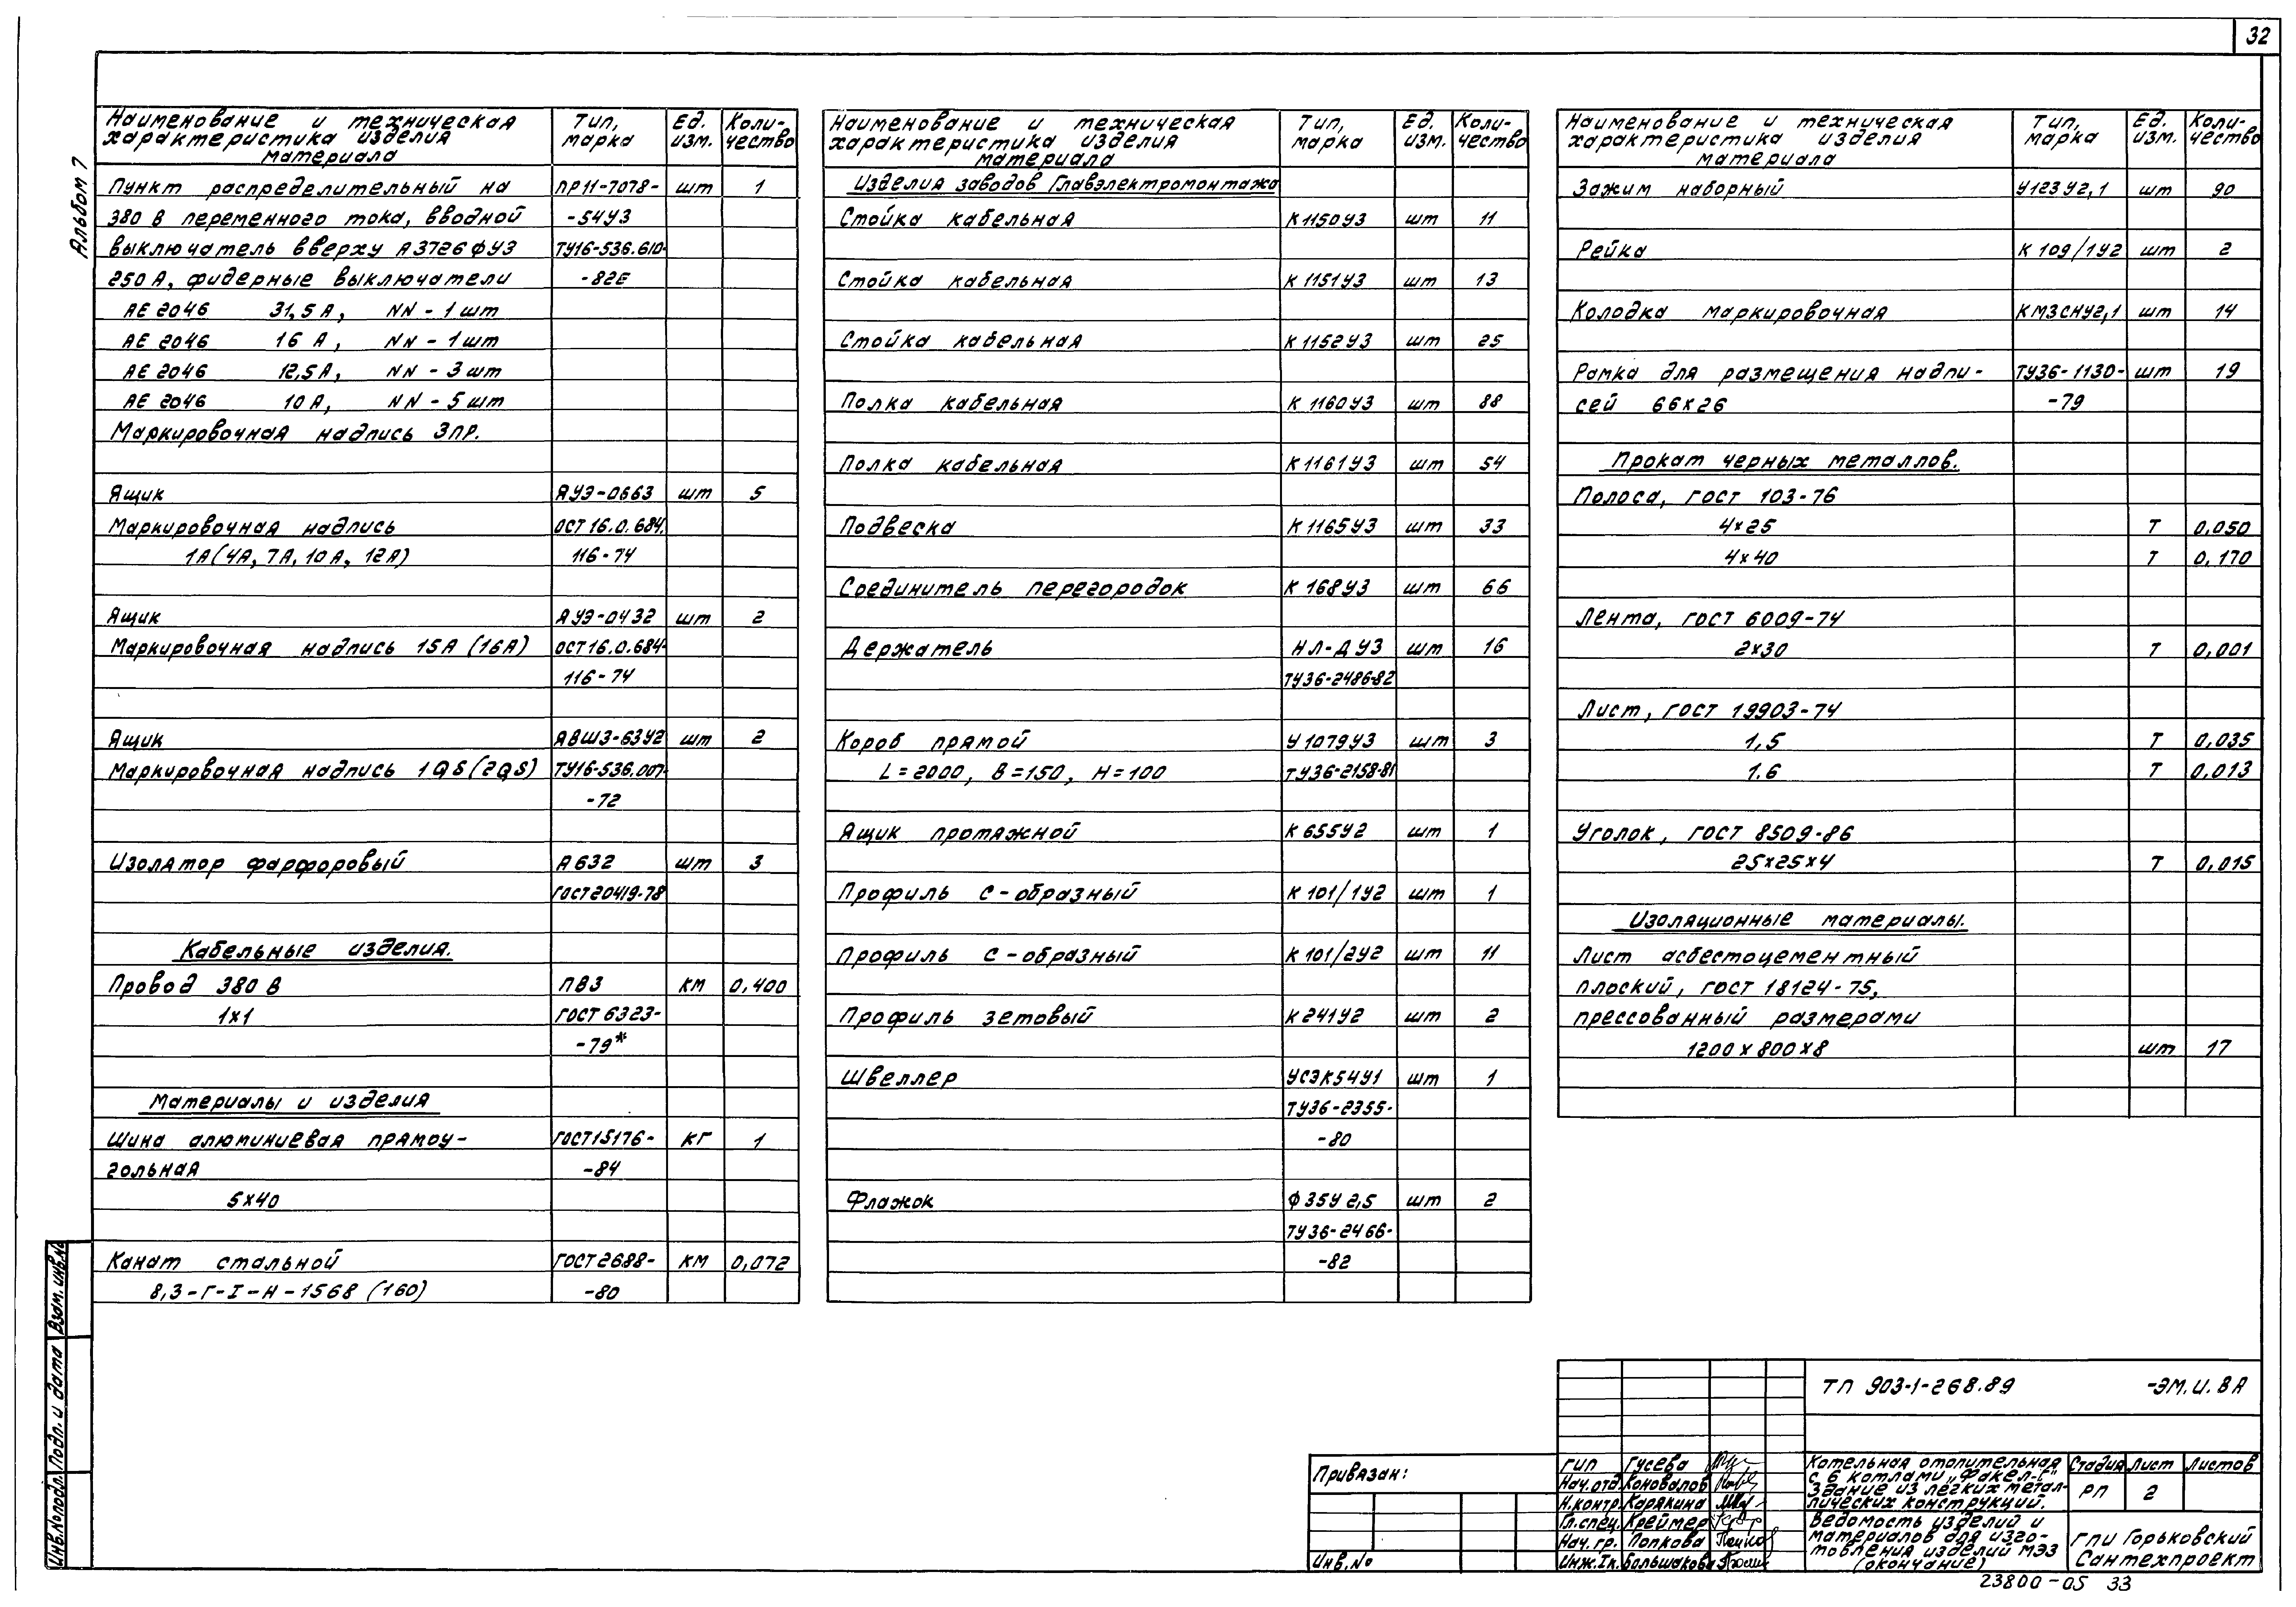 32
Альбом 7
Наименование и техническая характеристика изделия материала | Тип, марка | Ед. изм. | Коли-чество
Пункт распределительный на | ПР11-7078- | шт | 1
380 В переменного тока, вводной | -54У3
выключатель вверху А3726ФУ3 | ТУ16-536.610-
250А, фидерные выключатели | -82Е
АЕ 2046 31,5А, NN - 1 шт
АЕ 2046 16 А, NN - 1 шт
АЕ 2046 12,5А, NN - 3 шт
АЕ 2046 10А, NN - 5 шт
Маркировочная надпись 3ПР.
Ящик | ЯУЭ-0663 | шт | 5
Маркировочная надпись | ОСТ 16.0.684.
1А(4А, 7А, 10А, 12А) | 116-74
Ящик | ЯУЭ-0432 | шт | 2
Маркировочная надпись 15А (16А) | ОСТ16.0.684-
116-74
Ящик | ЯВШ3-63У2 | шт | 2
Маркировочная надпись 1QS(2QS) | ТУ16-536.007-
-72
Изолятор фарфоровый | А632 | шт | 3
ГОСТ20419-78
Кабельные изделия.
Провод 380 В | ПВ3 | км | 0,400
1х1 | ГОСТ 6323-
-79*
Материалы и изделия
Шина алюминиевая прямоу- | ГОСТ15176- | кг | 1
гольная | -84
5х40
Канат стальной | ГОСТ2688- | км | 0,072
8,3-Г-I-Н-1568 (160) | -80
Наименование и техническая характеристика изделия материала | Тип, марка | Ед. изм. | Коли-чество
Изделия заводов Главэлектромонтажа
Стойка кабельная | К1150У3 | шт | 11
Стойка кабельная | К1151У3 | шт | 13
Стойка кабельная | К1152У3 | шт | 25
Полка кабельная | К1160У3 | шт | 88
Полка кабельная | К1161У3 | шт | 54
Подвеска | К1165У3 | шт | 33
Соединитель перегородок | К168У3 | шт | 66
Держатель | НЛ-ДУ3 | шт | 16
ТУ36-2486-82
Короб прямой | У1079У3 | шт | 3
L=2000, B=150, H=100 | ТУ36-2158-81
Ящик протяжной | К655У2 | шт | 1
Профиль С-образный | К101/1У2 | шт | 1
Профиль С-образный | К101/2У2 | шт | 11
Профиль зетовый | К241У2 | шт | 2
Швеллер | УСЭК54У1 | шт | 1
ТУ36-2355-
-80
Флажок | Ф35У2,5 | шт | 2
ТУ36-2466-
-82
Наименование и техническая характеристика изделия материала | Тип, марка | Ед. изм. | Коли-чество
Зажим наборный | У123У2,1 | шт | 90
Рейка | К109/1У2 | шт | 2
Колодка маркировочная | КМ3СНУ2,1 | шт | 14
Рамка для размещения надпи- | ТУ36-1130- | шт | 19
сей 66х26 | -79
Прокат черных металлов.
Полоса, ГОСТ 103-76
4х25 | т | 0,050
4х40 | т | 0,170
Лента, ГОСТ 6009-74
2х30 | т | 0,001
Лист, ГОСТ 19903-74
1,5 | т | 0,035
1.6 | т | 0,013
Уголок, ГОСТ 8509-86
25х25х4 | т | 0,015
Изоляционные материалы.
Лист асбестоцементный
плоский, ГОСТ 18124-75,
прессованный размерами
1200х800х8 | шт | 17
Инв.№подл. Подп. и дата Взам. инв.№
ТП 903-1-268.89 -ЭМ.И.ВА
Привязан:
Инв.№
ГИП Гусева
Нач.отд. Коновалов
Н.контр. Карякина
Гл.спец. Креймер
Нач.гр. Попкова
Инж.Iк. Большакова
Котельная отопительная
с 6 котлами „Факел-Г"
Здание из легких метал-
лических конструкций.
Стадия Лист Листов
РП 2
Ведомость изделий и
материалов для изго-
товления изделий МЭЗ
(окончание)
ГПИ Горьковский
Сантехпроект
23800-05 33